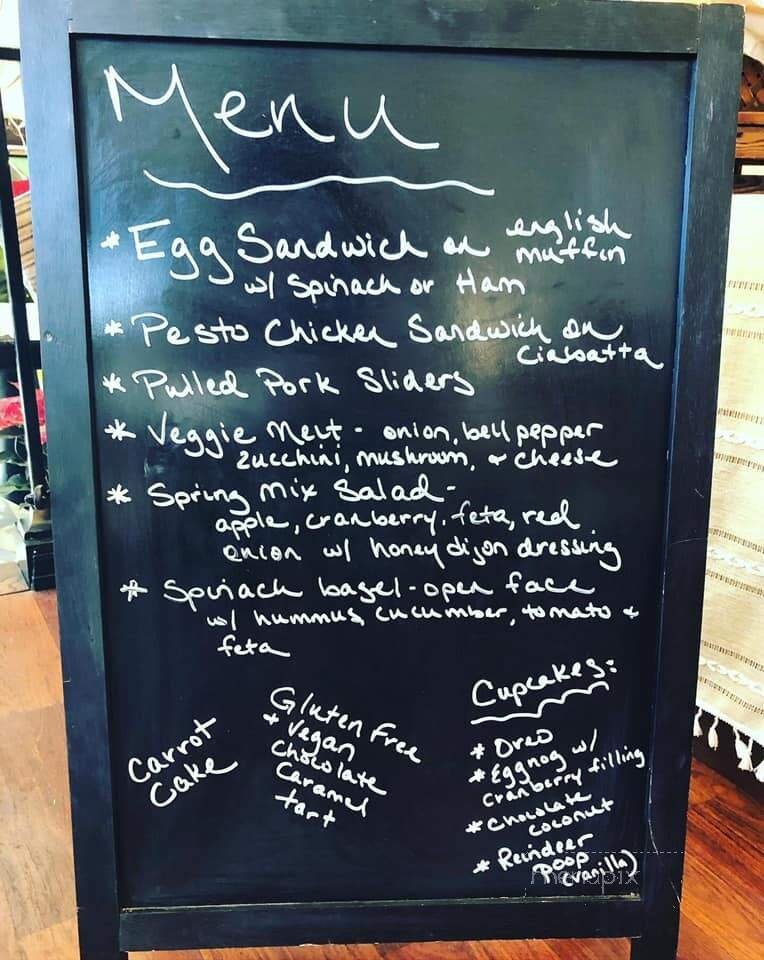 Menu
* Egg Sandwich on english
muffin
w/ Spinach or Ham
* Pesto Chicken Sandwich on
Ciabatta
* Pulled Pork Sliders
* Veggie Melt - onion, bell pepper
zucchini, mushroom, & cheese
* Spring Mix Salad-
apple, cranberry, feta, red
onion w/ honey dijon dressing
* Spinach bagel-open face
w/ hummus, cucumber, tomato &
feta
Carrot
Cake
Gluten Free
+ Vegan
Chocolate
Caramel
tart
Cupcakes:
* Oreo
* Eggnog w/
cranberry filling
* Chocolate
coconut
* Reindeer
Poop
(vanilla)
menupix